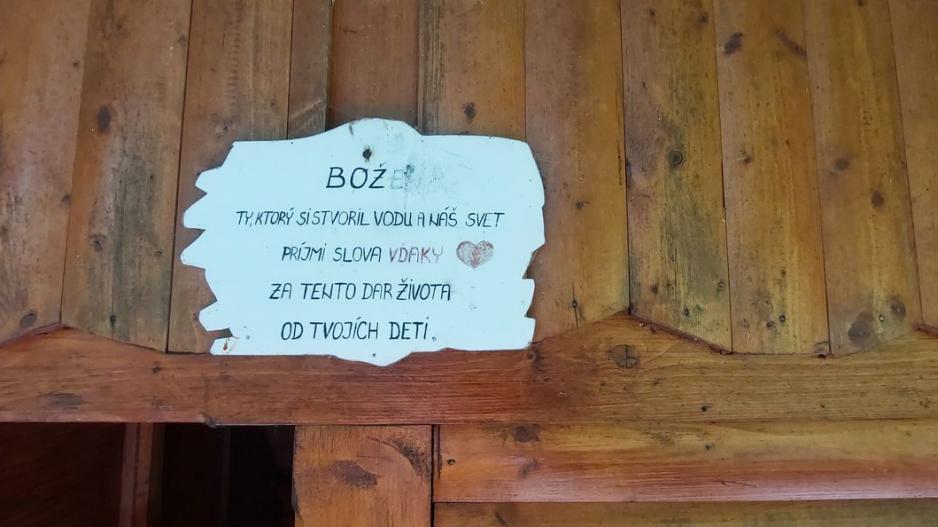 BOŽE
TY, KTORÝ SI STVORIL VODU A NÁŠ SVET
PRÍJMI SLOVA VĎAKY
ZA TENTO DAR ŽIVOTA
OD TVOJÍCH DETÍ.